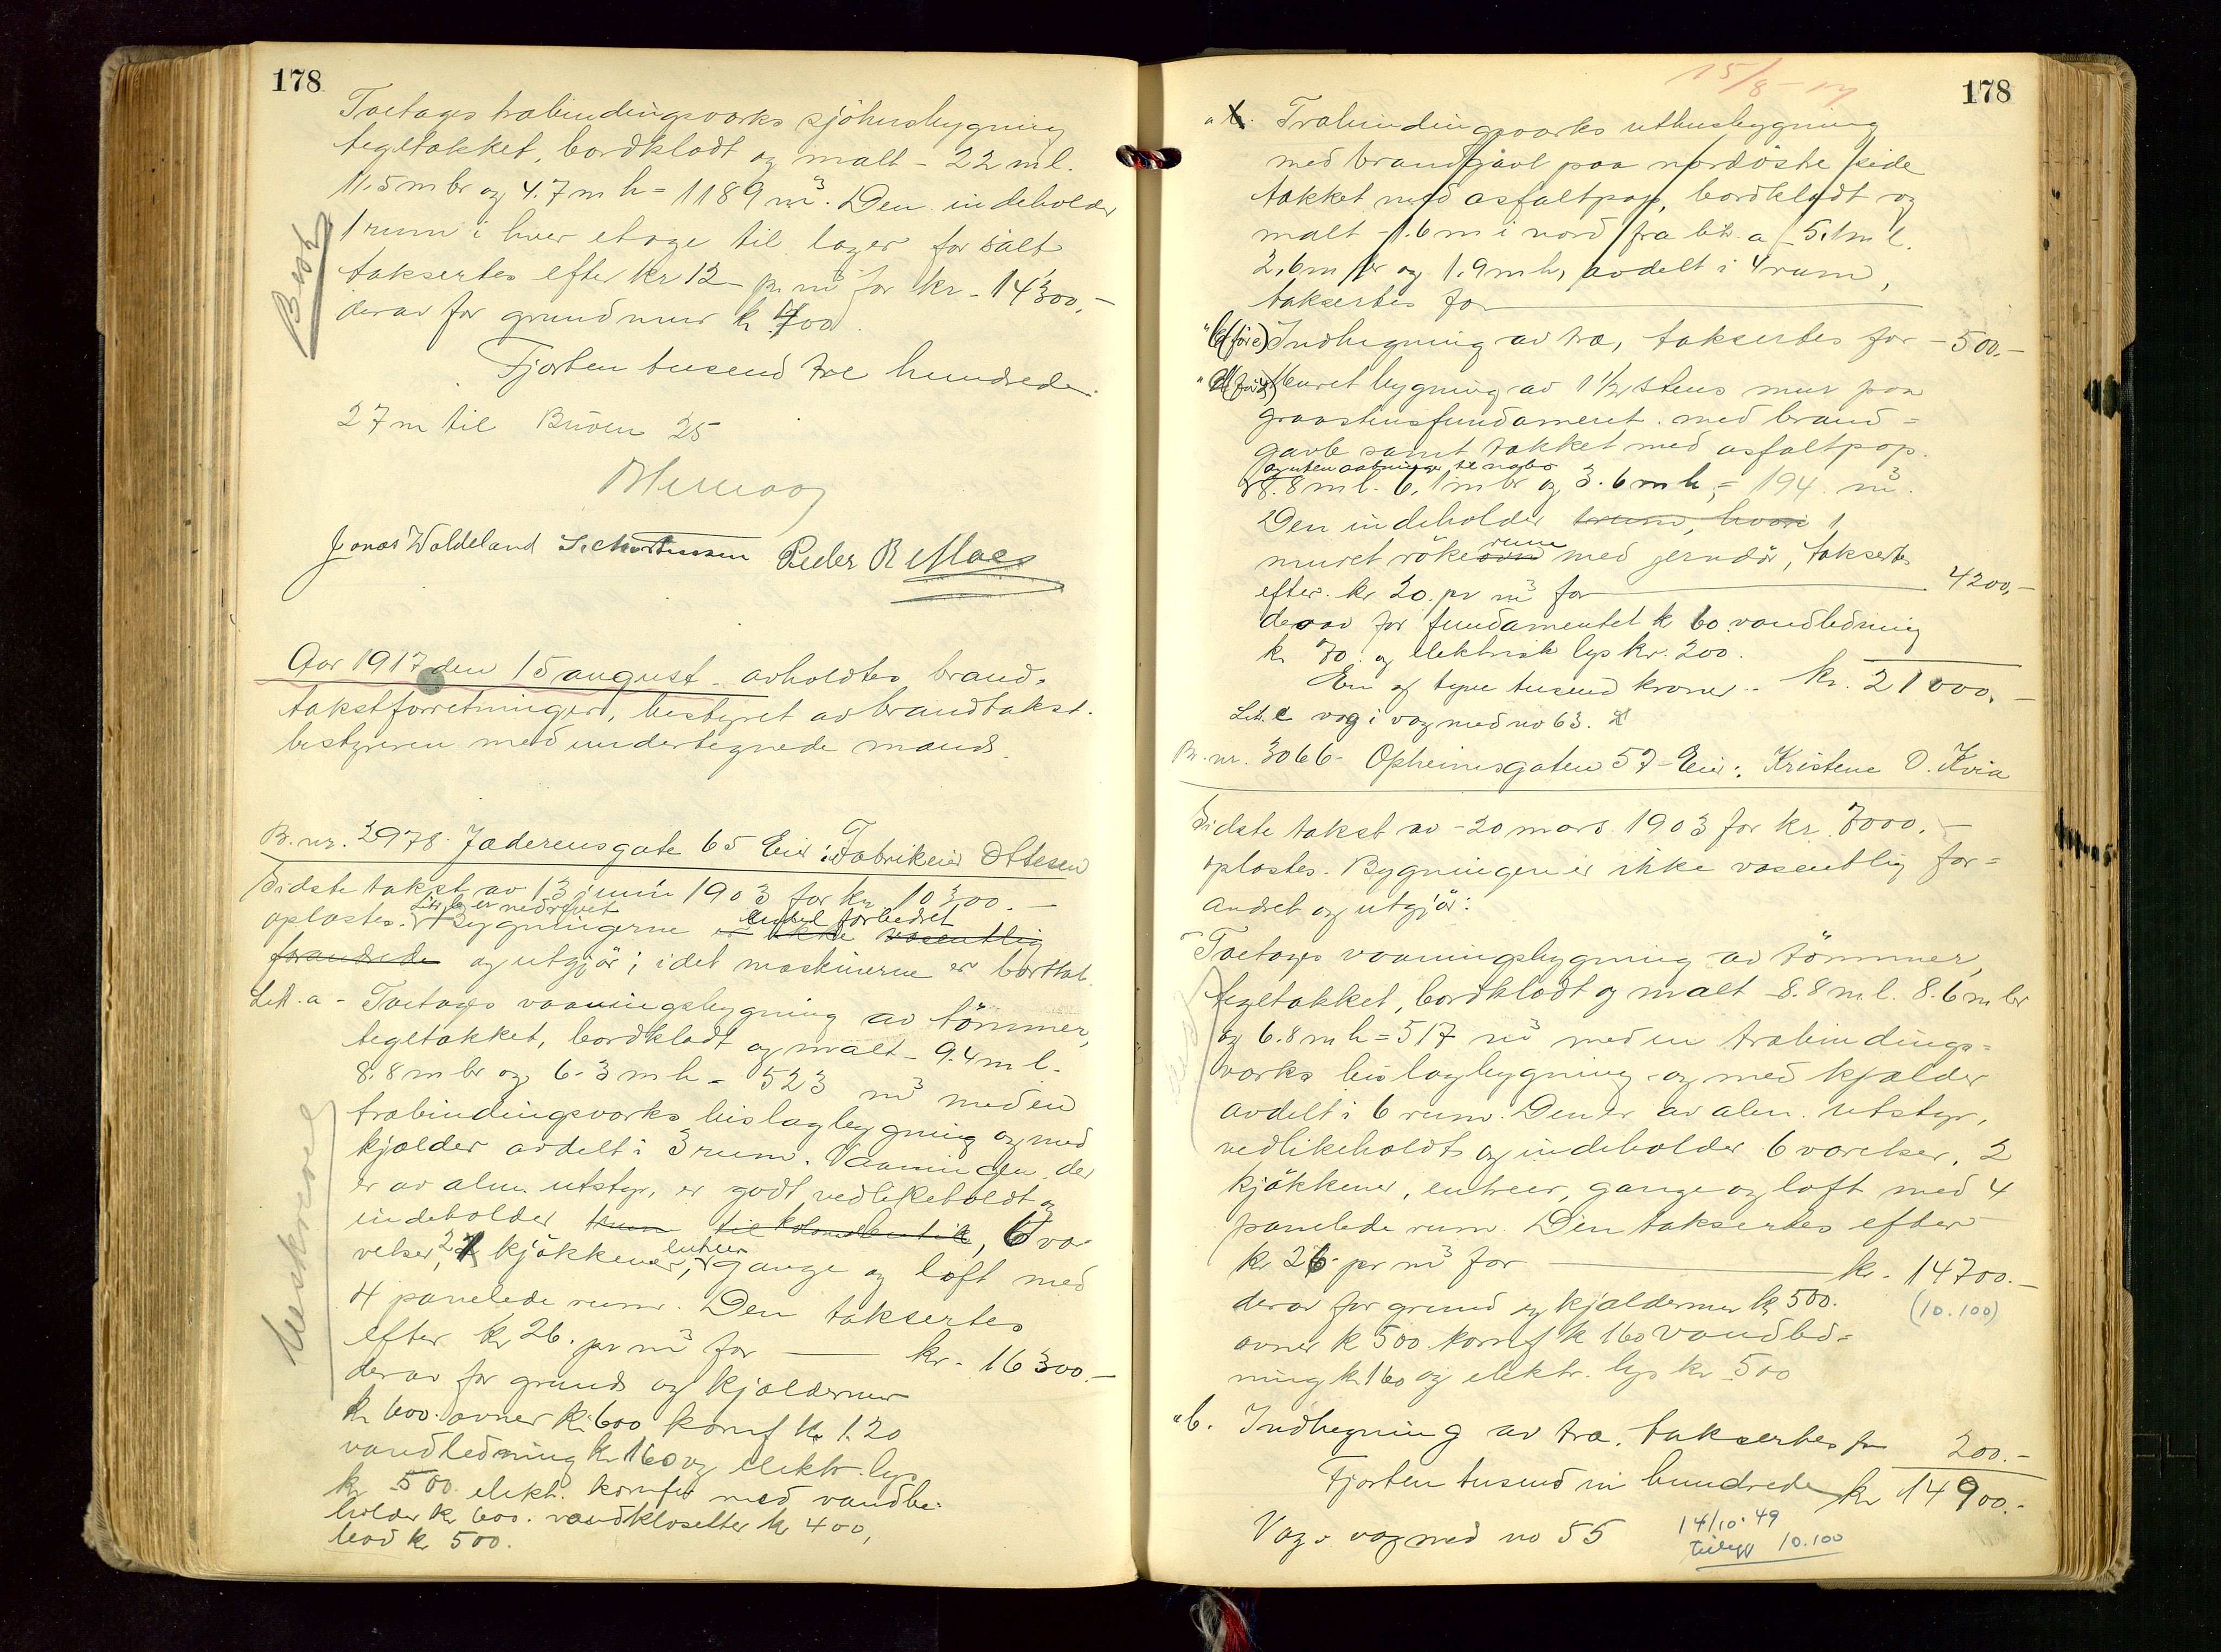 178
Toetages træbindingsværks sjöhusbygning
tegltækket, bordklædt og malt - 22 m l.
11.5 m br og 4.7 m h = 1189 m³. Den indeholder
1 rum i hver etage til lager for salt
taksertes efter kr 12 - pr m³ for kr. 14300,-
derav for grundmur k 700.
Fjorten tusend tre hundrede.
27 m til Buöen 25
Jonas Woldeland S. Mortensen Peder R Maos
Aar 1917 den 15 august avholdtes brand-
takstforretninger, bestyret av brandtakst-
bestyreren med undertegnede mænd.
Br. nr. 2978. Jæderensgate 65 Eier: Fabrikeier Ottesen
Sidste takst av 13 juni 1903 for kr 10300.-
Litr. b er nedrevet endel forbedret
oplæstes. Bygningerne er ikke væsentlig
forandrede og utgjör; idet maskinerne er borttat.
Litr. a - Toetages vaaningsbygning av tömmer,
tegltækket, bordklædt og malt - 9.4 m l.
8.8 m br og 6.3 m h = 523 m³ med en
træbindingsværks bislagbygning og med
kjælder avdelt i 3 rum. Vaaningen, der
er av alm. utstyr, er godt vedlikeholdt og
indeholder 1 rum til kolonibutik, 6 væ-
relser, 2 kjökkener, entreer, gange og loft med
4 panelede rum. Den taksertes
efter kr 26. pr m³ for kr. 16300.-
derav for grund og kjældermur
k 600. ovner k. 600 komf k. 120
vandledning k 160 og elektr. lys
kr 500 elekt. komfur med vandbe-
holder kr 600. vandklosetter kr 400,
bad k 500.
15/8-17
178
" b. Træbindingsværks uthusbygning
med brandgavl paa nordöstre side
tækket med asfaltpap, bordklædt og
malt - 1.6 m i nord fra litr. a - 5.1 m l.
2.6 m br og 1.9 m h, avdelt i 4 rum,
taksertes for
" b (för c) Indhegning av træ, taksertes for - 500.-
" (för d) Muret bygning av 1½ stens mur paa
graastensfundament. med brand-
gavle samt tækket med asfaltpap.
og uten aabninger til nabo
8.8 m l. 6.1 m br og 3.6 m h, = 194 m³.
Den indeholder 1 rum, hvori 1
muret rökeovn rum med jerndör, taksertes
efter kr 20. pr m³ for 4200,-
derav for fundamentet k 60 vandledning
k. 70. og elektrisk lys kr. 200.
En og tyve tusend kroner - kr. 21000.-
Litr. c væg i væg med no 63.
Br. nr. 3066. Opheimsgaten 57 - Eier: Kristine O. Kvia
Sidste takst av - 20 mars 1903 for kr. 7000.-
oplæstes. Bygningen er ikke væsentlig for-
andret og utgjör:
Toetages vaaningsbygning av tömmer,
tegltækket, bordklædt og malt - 8.8 m l. 8.6 m br
og 6.8 m h = 517 m³ med en træbindings-
værks bislagbygning og med kjælder
avdelt i 6 rum. Den er av alm. utstyr,
vedlikeholdt og indeholder 6 værelser, 2
kjökkener, entreer, gange og loft med 4
panelede rum. Den taksertes efter
kr 26. pr m³ for kr. 14700.-
derav for grund og kjældermur k 500. (10.100)
ovner k 500 komf k 160 vandled-
ning k. 160 og elektr. lys kr. 500
" b. Indhegning av træ. taksertes for 200.-
Fjorten tusend ni hundrede kr 14900.-
Væg i væg med no 55
14/10-49
tillegg 10.100